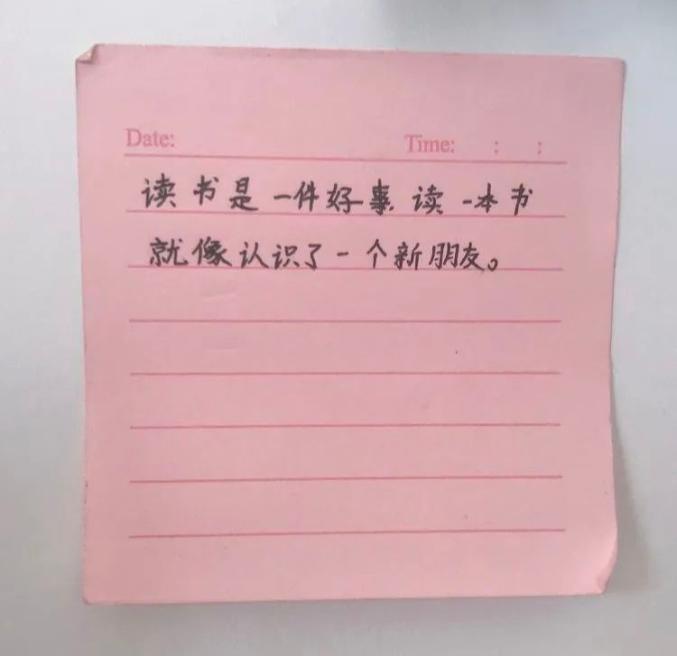 Date: Time: : :
读书是一件好事.读一本书
就像认识了一个新朋友。